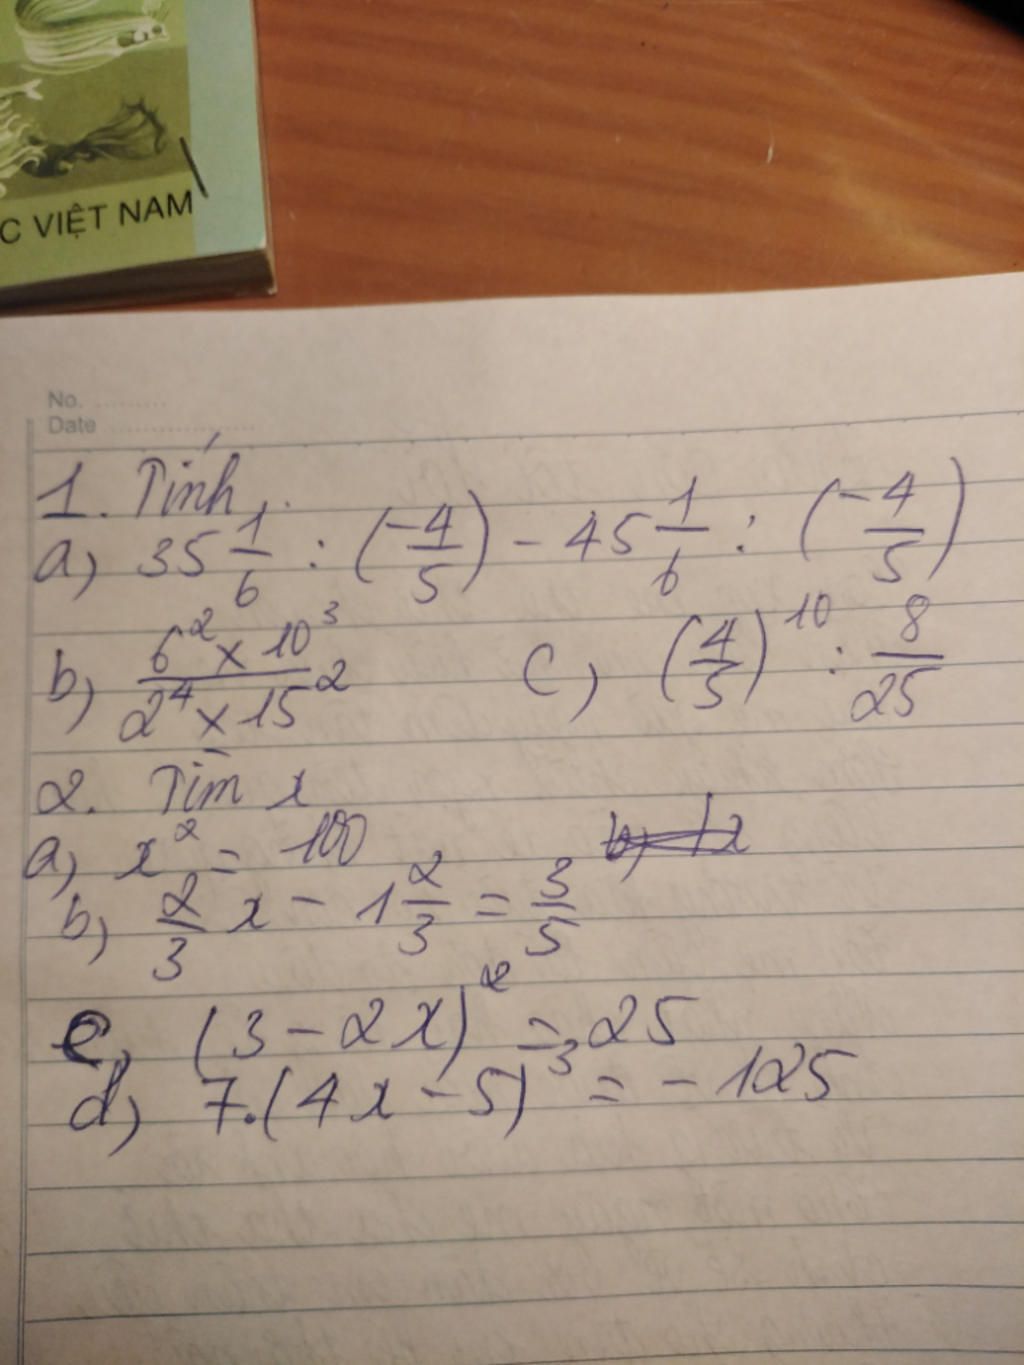 C VIỆT NAM
No. ..........
Date ......................
1. Tính
a) 35 1/6 : (-4/5) - 45 1/6 : (-4/5)
b) 6² x 10³ / 2⁴ x 15² c) (4/5)¹⁰ : 8/25
2. Tìm x
a) x² = 100
b) 2/3 x - 1 2/3 = 3/5
c) (3 - 2x)² = 25
d) 7.(4x - 5)³ = - 125